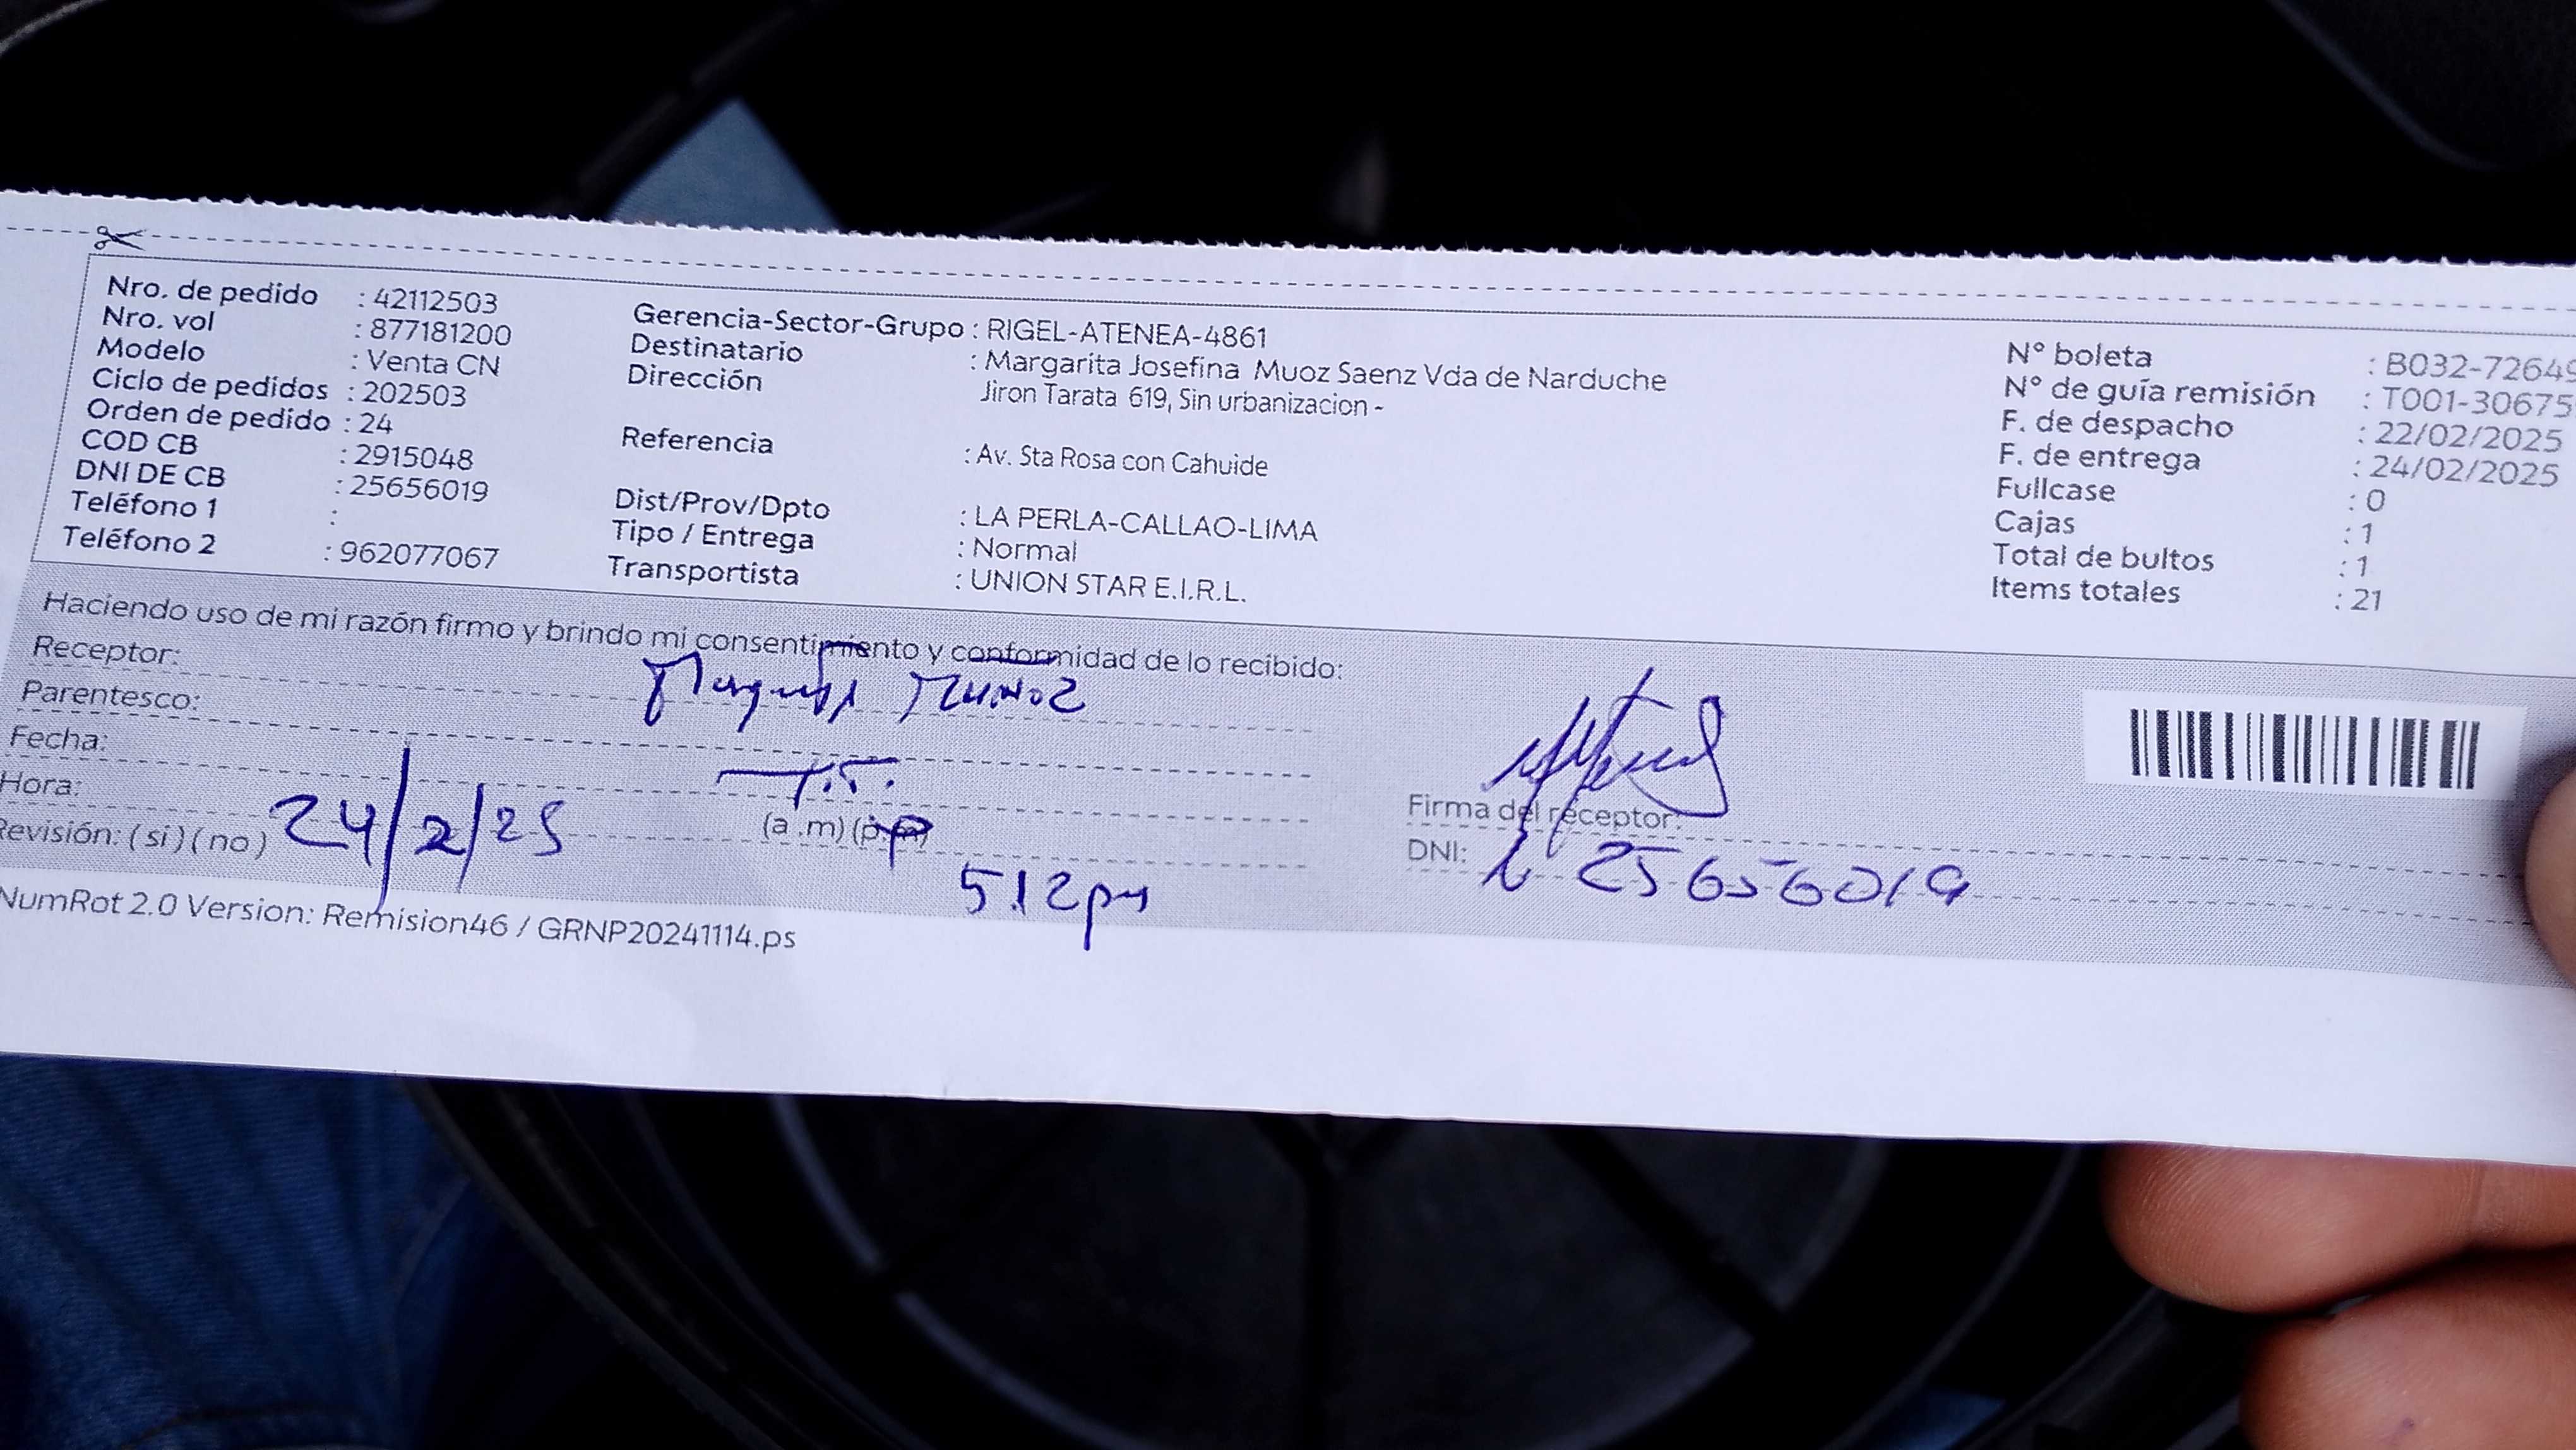 Nro. de pedido : 42112503
Nro. vol : 877181200
Modelo : Venta CN
Ciclo de pedidos : 202503
Orden de pedido : 24
COD CB : 2915048
DNI DE CB : 25656019
Teléfono 1 :
Teléfono 2 : 962077067
Gerencia-Sector-Grupo : RIGEL-ATENEA-4861
Destinatario : Margarita Josefina Muoz Saenz Vda de Narduche
Dirección
Jiron Tarata 619, Sin urbanizacion -
Referencia : Av. Sta Rosa con Cahuide
Dist/Prov/Dpto : LA PERLA-CALLAO-LIMA
Tipo / Entrega : Normal
Transportista : UNION STAR E.I.R.L.
N° boleta : B032-72649
N° de guía remisión : T001-30675
F. de despacho : 22/02/2025
F. de entrega : 24/02/2025
Fullcase : 0
Cajas : 1
Total de bultos : 1
Items totales : 21
Haciendo uso de mi razón firmo y brindo mi consentimiento y conformidad de lo recibido:
Receptor:
Muñoz
Parentesco:
T.T.
Fecha:
24/2/25
Hora:
(a .m) (p
512pm
Revisión: ( si ) ( no )
Firma del receptor:
DNI: 25656019
NumRot 2.0 Version: Remision46 / GRNP20241114.ps